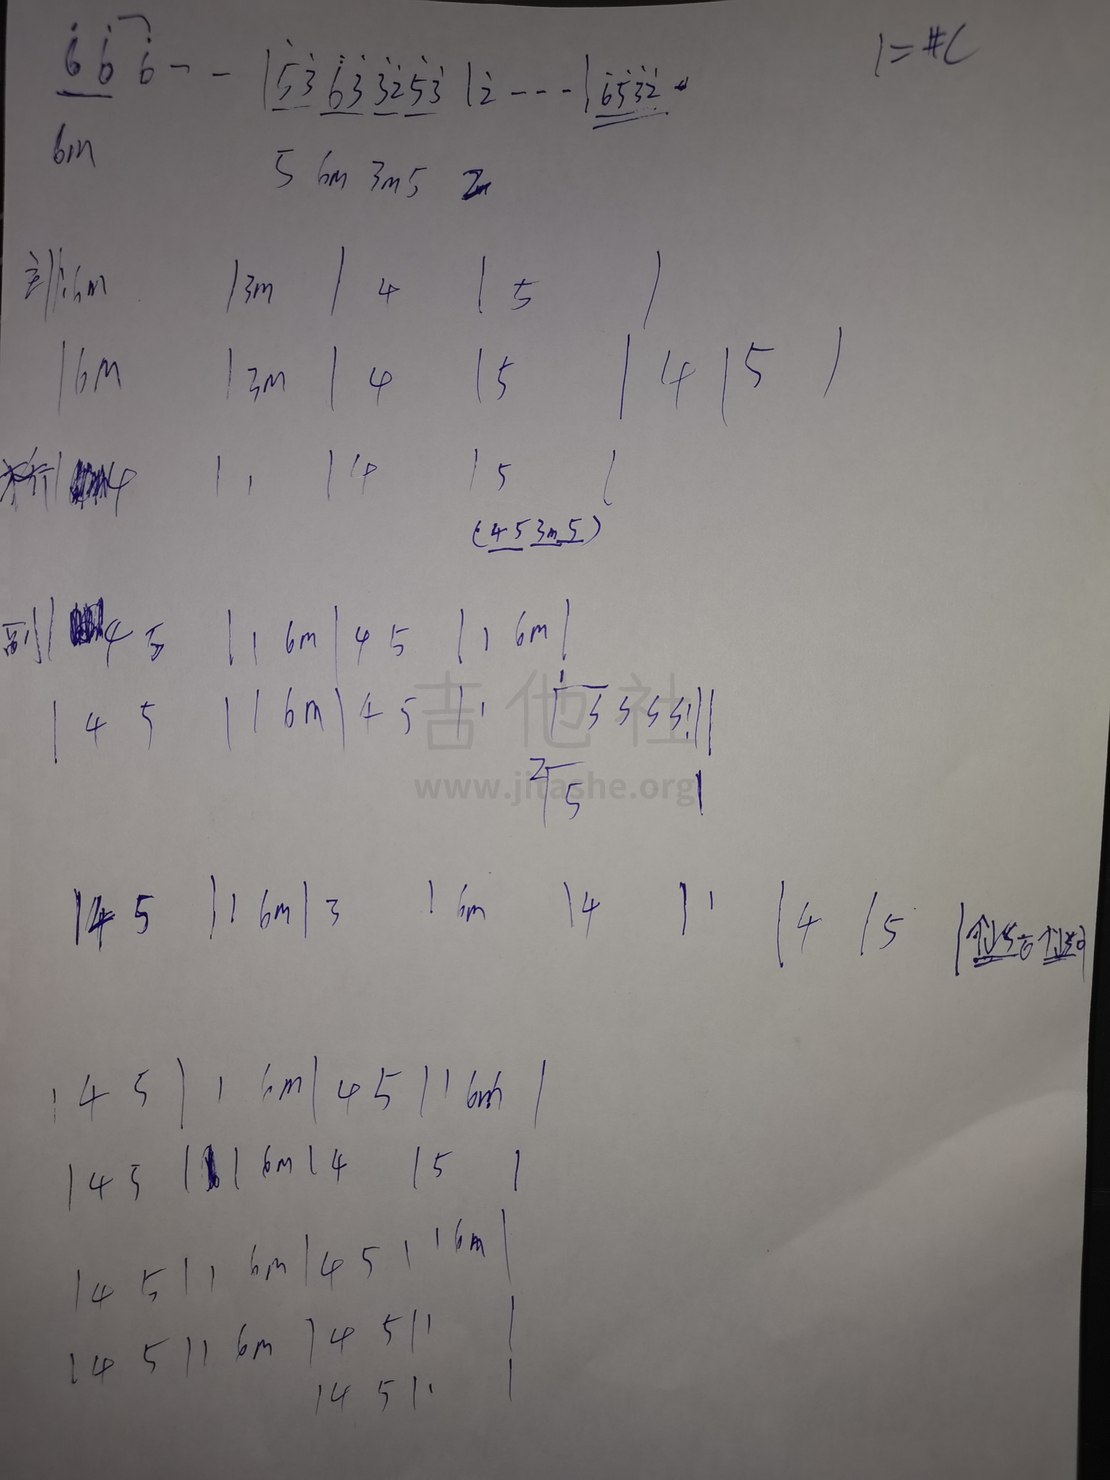 6 6 6 - - | 5 3 6 3 3 2 5 3 | 2 - - - | 6 5 3 2 1=#C
6m 5 6m 3m 5
主 ||: 6m | 3m | 4 | 5 |
| 6m | 3m | 4 | 5 | 4 | 5 |
| 4 | 1 | 4 | 5 |
(4 5 3m 5)
副 | 4 5 | 1 6m | 4 5 | 1 6m |
| 4 5 | 1 6m | 4 5 | 1 1 5 5 5 5 :||
吉他社
www.jitashe.org
2 5 |
| 4 5 | 1 6m | 3 | 6m | 4 | 1 | 4 | 5 |
| 4 5 | 1 6m | 4 5 | 1 6m |
| 4 5 | 1 6m | 4 | 5 |
| 4 5 | 1 6m | 4 5 | 1 6m |
| 4 5 | 1 6m | 4 5 | 1 |
| 4 5 | 1 |